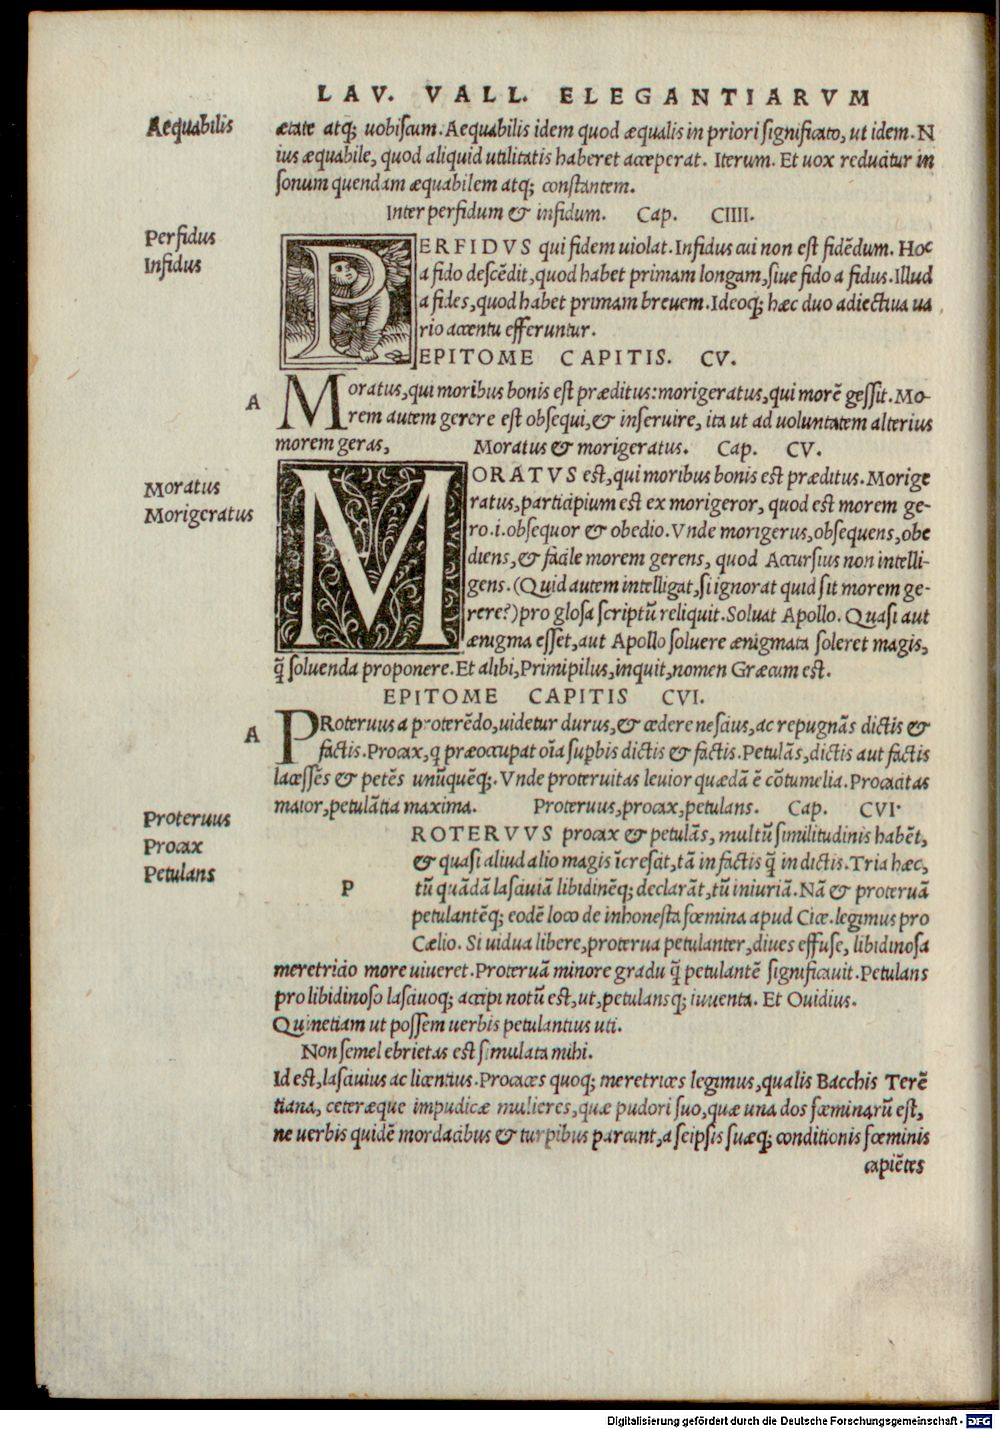 LAV. VALL. ELEGANTIARVM
Aequabilis
ætate atq; uobiscum. Aequabilis idem quod æqualis in priori significato, ut idem. N
ius æquabile, quod aliquid utilitatis haberet acceperat. Iterum. Et uox reducitur in
sonum quendam æquabilem atq; constantem.
Inter perfidum & infidum. Cap. CIIII.
Perfidus
Infidus
PERFIDVS qui fidem uiolat. Infidus cui non est fidẽdum. Hoc
a fido descẽdit, quod habet primam longam, siue fido a fidus. Illud
a fides, quod habet primam breuem. Ideoq; hæc duo adiectiua ua
rio accentu efferuntur.
EPITOME CAPITIS. CV.
A
Moratus, qui moribus bonis est præditus: morigeratus, qui morẽ gessit. Mo-
rem autem gerere est obsequi, & inseruire, ita ut ad uoluntatem alterius
morem geras, Moratus & morigeratus. Cap. CV.
Moratus
Morigeratus
MORATVS est, qui moribus bonis est præditus. Morige
ratus, participium est ex morigeror, quod est morem ge-
ro.i.obsequor & obedio. Vnde morigerus, obsequens, obe
diens, & facile morem gerens, quod Accursius non intelli-
gens. (Quid autem intelligat, si ignorat quid sit morem ge-
rere?) pro glosa scriptũ reliquit. Soluat Apollo. Quasi aut
ænigma esset, aut Apollo soluere ænigmata soleret magis,
q̃ soluenda proponere. Et alibi, Primipilus, inquit, nomen Græcum est.
EPITOME CAPITIS CVI.
A
PRoteruus a proterẽdo, uidetur durus, & cedere nescius, ac repugnãs dictis &
factis. Procax, q præoccupat oĩa supbis dictis & factis. Petulãs, dictis aut factis
lacessẽs & petẽs unũquẽq;. Vnde proteruitas leuior quædã ẽ cõtumelia. Procacitas
maior, petulãtia maxima. Proteruus, procax, petulans. Cap. CVI.
Proteruus
Procax
Petulans
P
ROTERVVS procax & petulãs, multũ similitudinis habẽt,
& quasi aliud alio magis ĩcrescit, tã in factis q̃ in dictis. Tria hæc,
tũ quãdã lasciuiã libidinẽq; declarãt, tũ iniuriã. Nã & proteruã
petulantẽq; eodẽ loco de inhonesta fœmina apud Cice. legimus pro
Cælio. Si uidua libere, proterua petulanter, diues effuse, libidinosa
meretricio more uiueret. Proteruã minore gradu q̃ petulantẽ significauit. Petulans
pro libidinoso lasciuoq; accipi notũ est, ut, petulansq; iuuenta. Et Ouidius.
Quinetiam ut possem uerbis petulantius uti.
Non semel ebrietas est simulata mihi.
Id est, lasciuius ac licentius. Procaces quoq; meretrices legimus, qualis Bacchis Terẽ
tiana, ceteræque impudicæ mulieres, quæ pudori suo, quæ una dos fœminarũ est,
ne uerbis quidẽ mordacibus & turpibus parcunt, a seipsis suæq; conditionis fœminis
capiẽtes
Digitalisierung gefördert durch die Deutsche Forschungsgemeinschaft - DFG